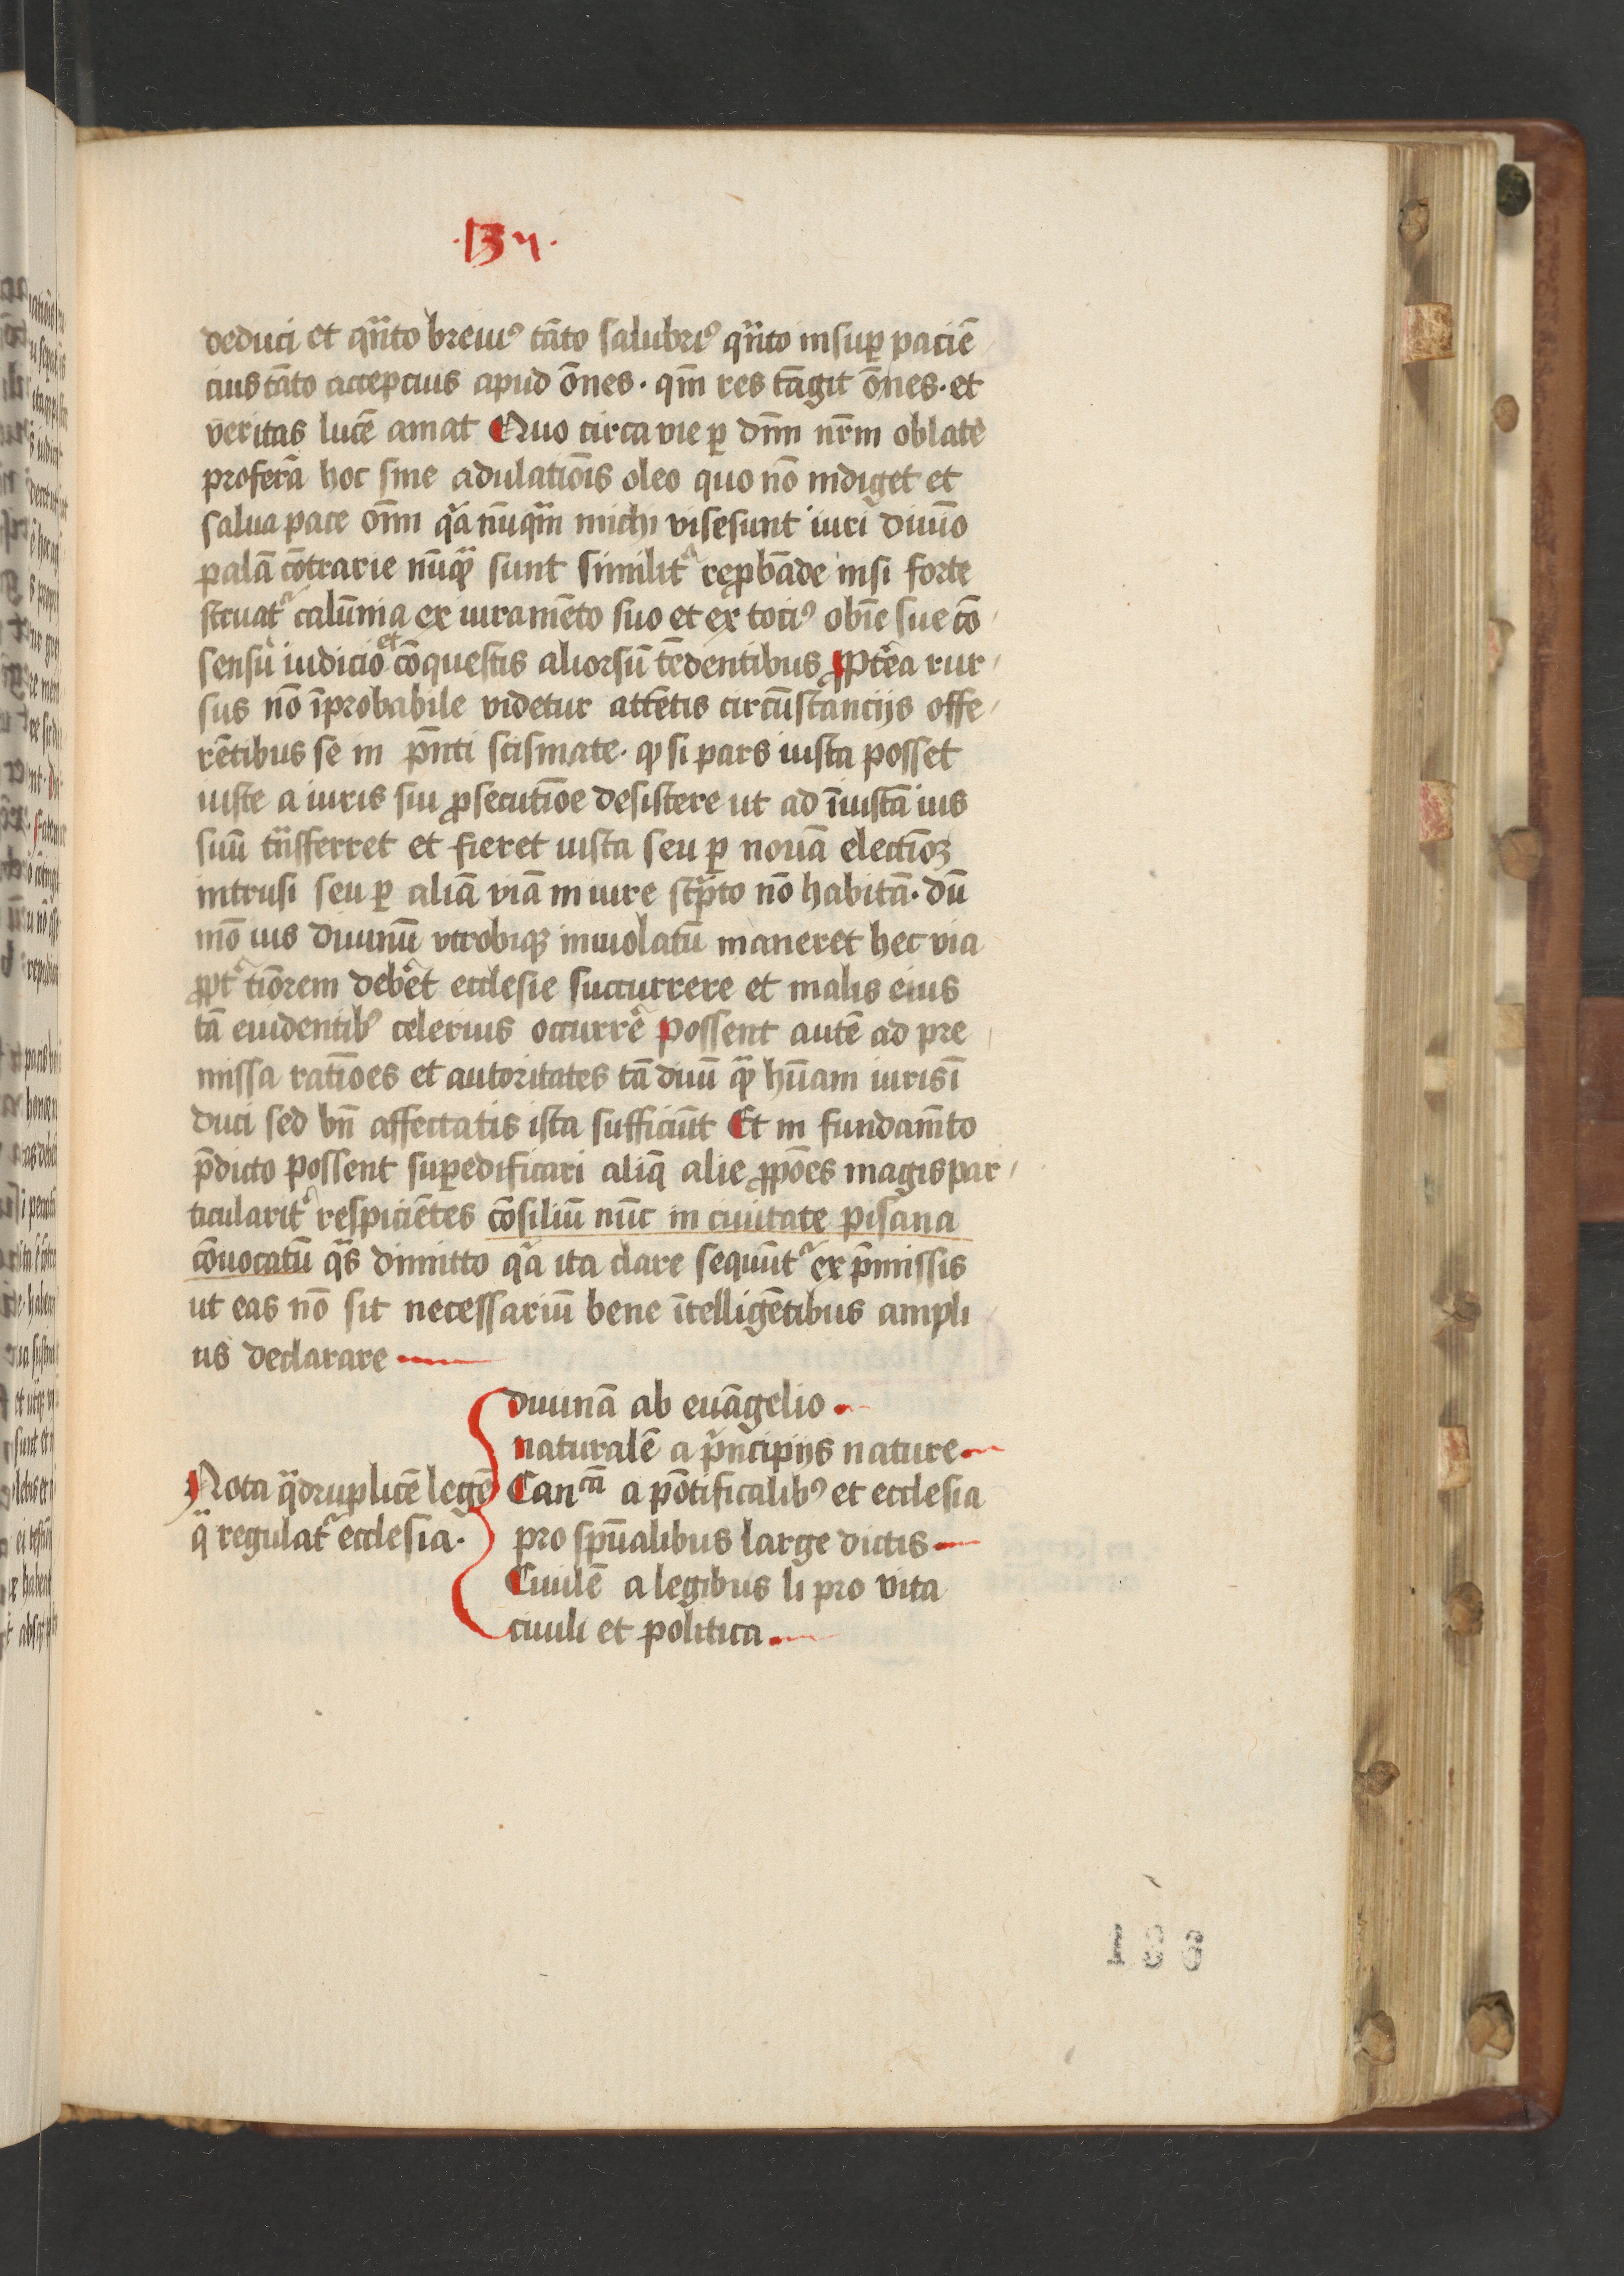 .134.
deduci et qñto breiuꝰ tāto salubriꝰ qñto insuꝑ paciē
cius tāto accepcius apud ōnes . qm̄ res tāgit ōnes . et
veritas lucē amat Quo circa vie ꝑ dn̄m nr̄m oblate
proferā hoc sine adulatiōis oleo quo nō indiget et
salua pace om̄i qa nūqm̄ michi vise sunt iuri diuīo
palā cōtrarie nūqꝫ sunt similit᷑ reꝓbāde nisi forte
struat᷑ calūnia ex iuramēto suo et ex tociꝰ obīe sue cō
sensū iudicio et cōquestis aliorsū tēdentibus ꝓpt̄ea rur
sus nō īprobabile videtur attētis circūstancijs offe
rētibus se in p̄nti scismate . ꝙ si pars iusta posset
iuste a iuris sui ꝓsecutiōe desistere ut ad īiustā ius
suū trāsferret et fieret iusta seu ꝑ nouā electioꝫ
intrusi seu ꝑ aliā viā in iure scrpto nō habitā . dū
mō ius diuinū vtrobiqꝫ inuiolatū maneret hec via
ꝓpt᷑ tiōrem deb̄et ecclesie succurrere et malis eius
tā euidentibꝰ celerius occurrē Possent autē ad pre
missa ratiōes et autoritates tā diuū qꝫ hūam iuris ī
duci sed bn̄ affectatis ista sufficiūt Et in fundam̄to
p̄dicto possent suꝑedificari aliq̄ alie ꝓpōes magis par
ticularit᷑ respiciētes cōsiliū nūc in ciuitate pisana
cōuocatū qās dimitto qa ita clare sequūt᷑ ex p̄missis
ut eas nō sit necessariū bene ītelligētibus ampli
us declarare
diuinā ab euāgelio .
naturalē a pn̄cipijs nature
Nota qͣdruplicē legē Canᶜᵃ̄ a pōtificalibꝰ et ecclesia
q̄ regulat᷑ ecclesia . pro spūalibus large dictis
Ciuilē a legibus li pro vita
ciuili et politica .
136